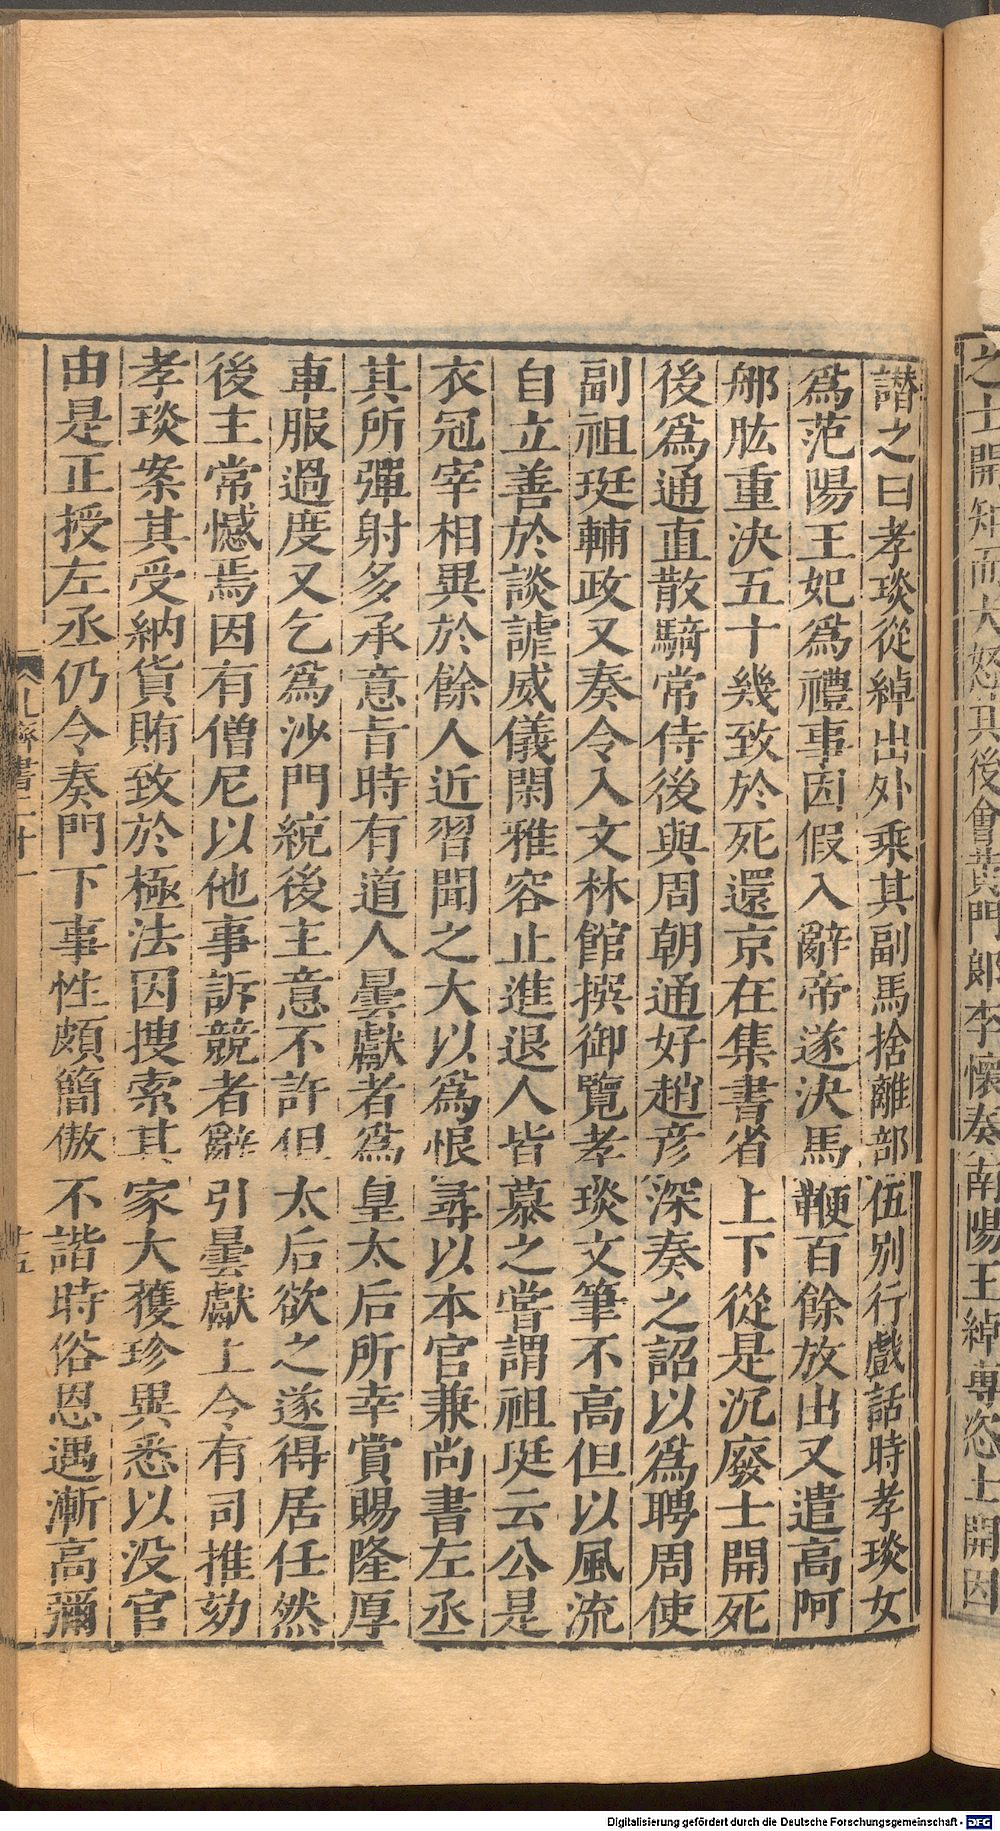 之士開知而大怒其後會黃門郎李懷奏南陽王綽專恣士開因
譖之曰孝琰從綽出外乘其副馬捨離部伍別行戲話時孝琰女
爲范陽王妃爲禮事因假入辭帝遂決馬鞭百餘放出又遣高阿
那肱重決五十幾致於死還京在集書省上下從是沉廢士開死
後爲通直散騎常侍後與周朝通好趙彥深奏之詔以爲聘周使
副祖珽輔政又奏令入文林館撰御覽孝琰文筆不高但以風流
自立善於談謔威儀閑雅容止進退人皆慕之嘗謂祖珽云公是
衣冠宰相異於餘人近習聞之大以爲恨尋以本官兼尚書左丞
其所彈射多承意旨時有道人曇獻者爲皇太后所幸賞賜隆厚
車服過度又乞爲沙門統後主意不許但太后欲之遂得居任然
後主常憾焉因有僧尼以他事訴競者辭引曇獻上令有司推劾
孝琰案其受納貨賄致於極法因搜索其家大獲珍異悉以没官
由是正授左丞仍令奏門下事性頗簡傲不諧時俗恩遇漸高彌
北齊書二十一
十五
Digitalisierung gefördert durch die Deutsche Forschungsgemeinschaft - DFG